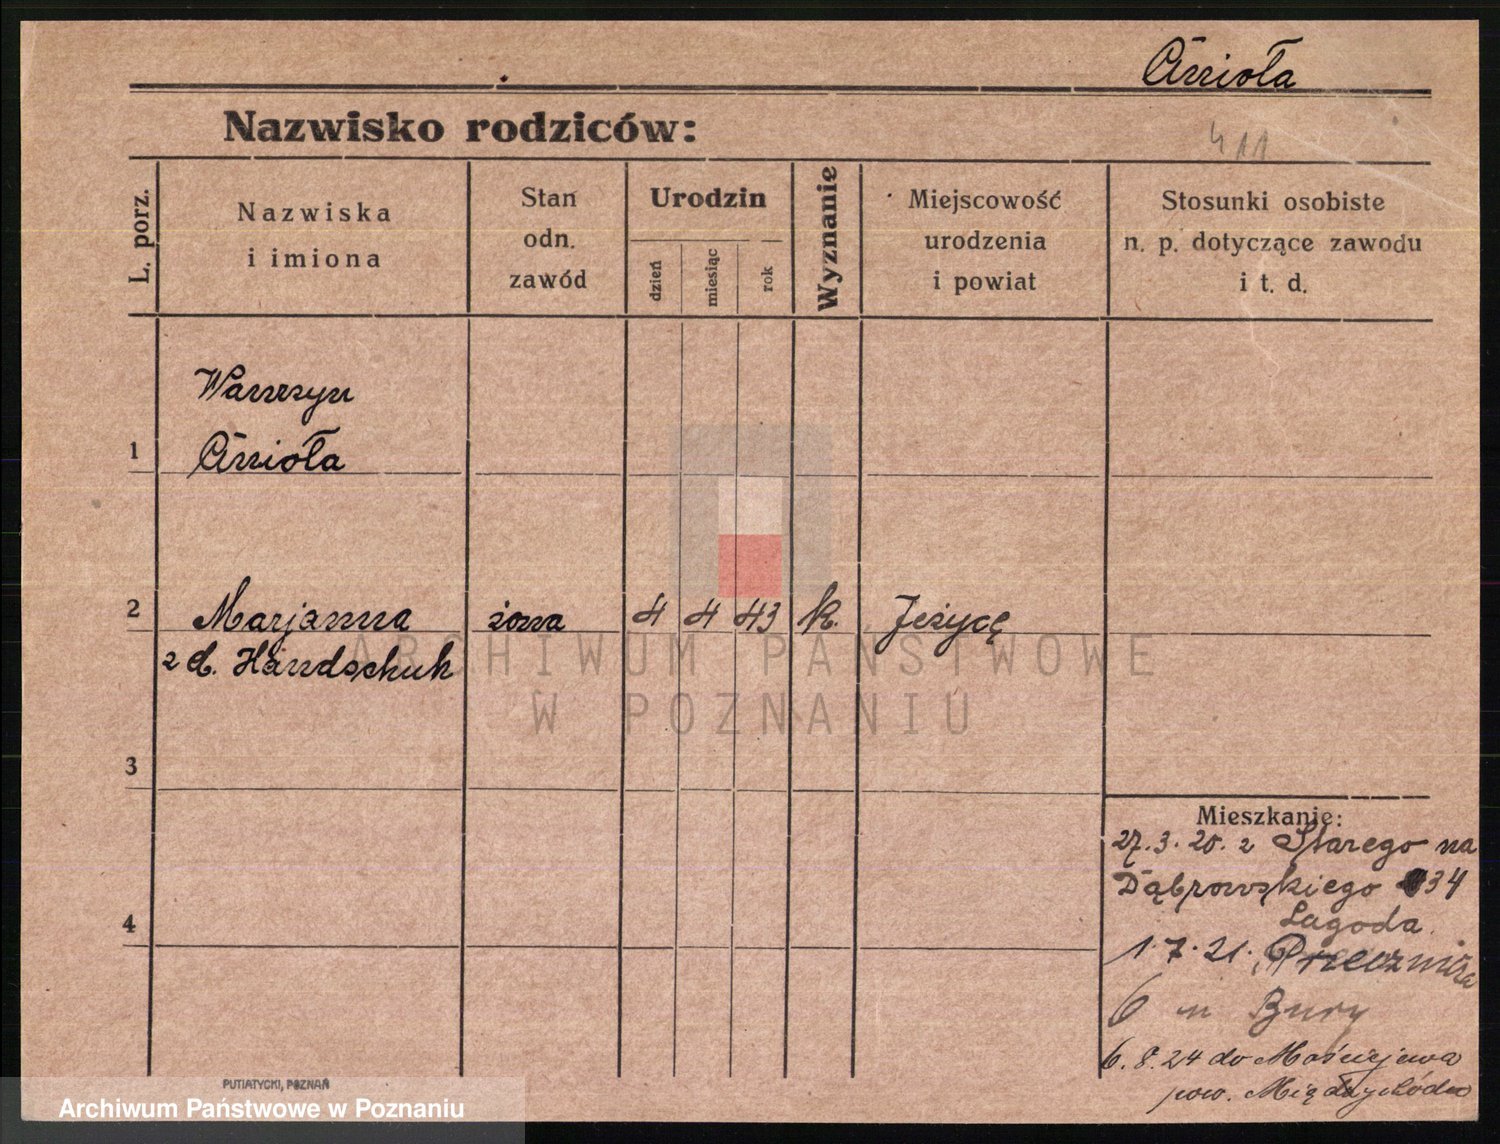 Ćwioła
Nazwisko rodziców:
411
L. porz.
Nazwiska
i imiona
Stan
odn.
zawód
Urodzin
dzień
miesiąc
rok
Wyznanie
Miejscowość
urodzenia
i powiat
Stosunki osobiste
n. p. dotyczące zawodu
i t. d.
Wawrzyn
1
Ćwioła
2
Marjanna
żona
4
4
43
k.
Jeżyce
z d. Handschuh
ARCHIWUM PAŃSTWOWE
W POZNANIU
3
Mieszkanie:
27.3.20. z Starego na
Dąbrowskiego 34
Łagoda.
4
1.7.21. Przecznica
6 u Bury
6.8.24 do Mościejewa
pow. Międzychódu
PUTIATYCKI, POZNAŃ
Archiwum Państwowe w Poznaniu